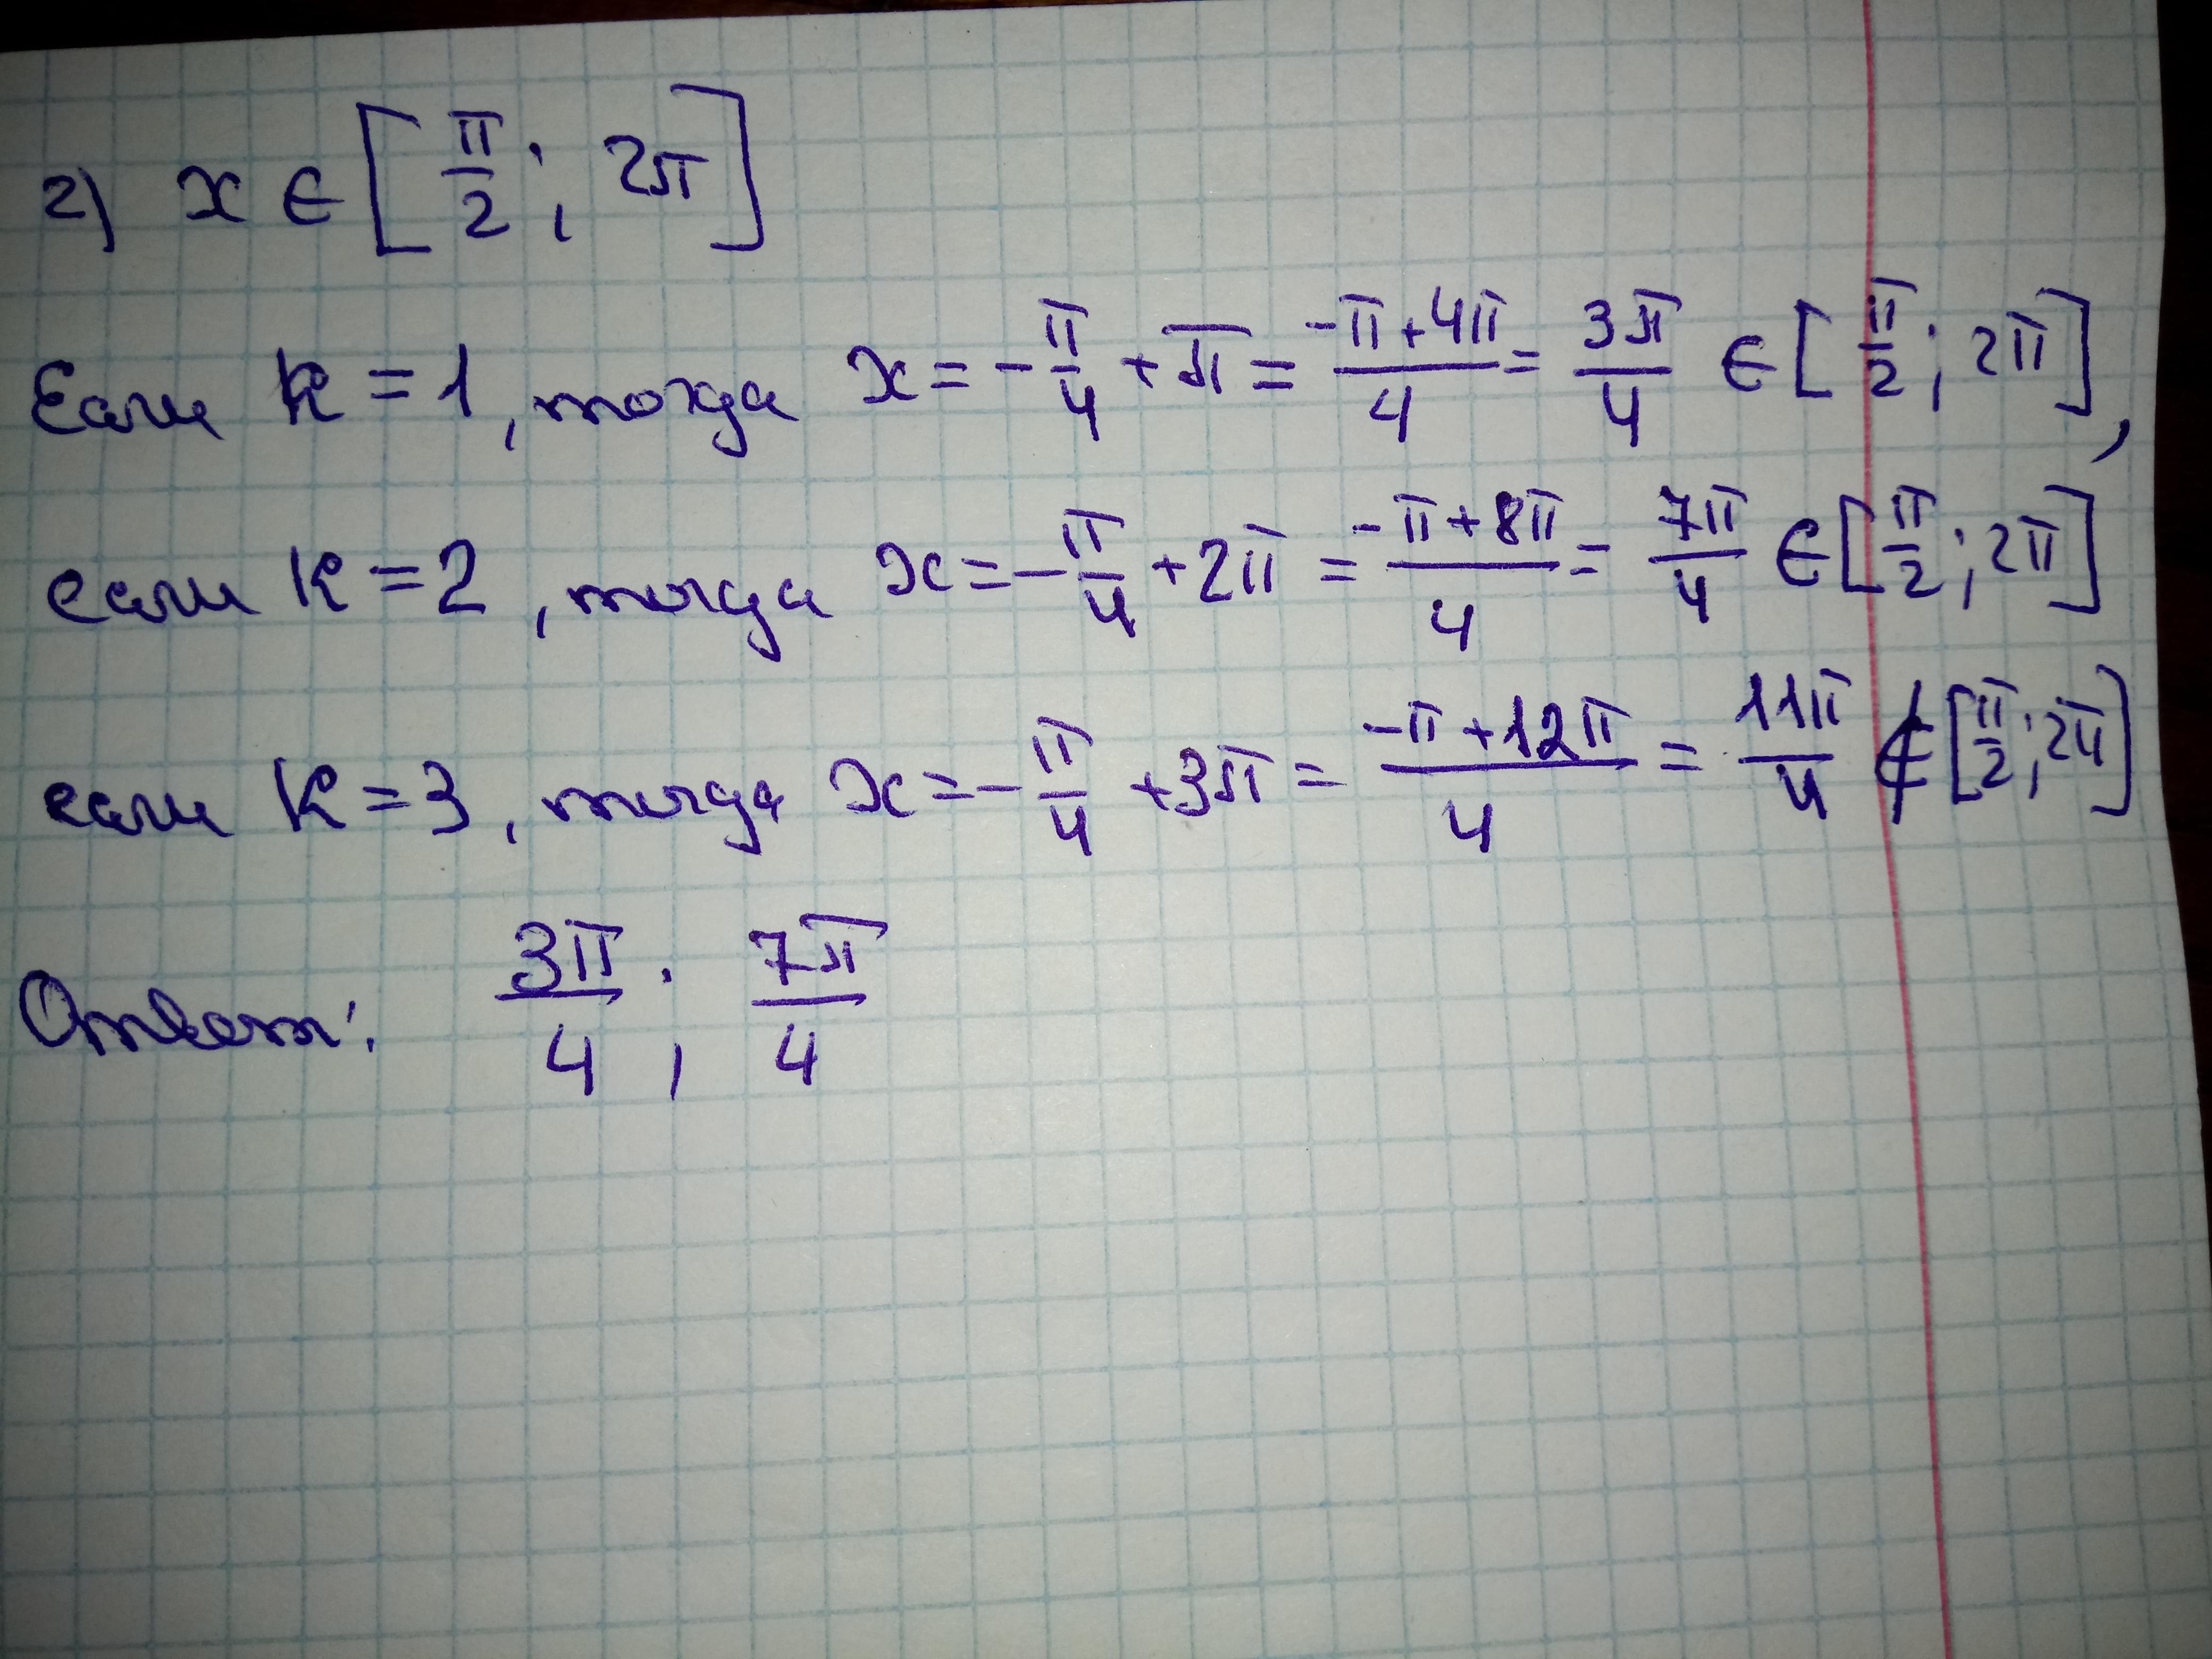 2) x ∈ [π/2; 2π]
Если k = 1, тогда x = -π/4 + π = (-π + 4π)/4 = 3π/4 ∈ [π/2; 2π],
если k = 2, тогда x = -π/4 + 2π = (-π + 8π)/4 = 7π/4 ∈ [π/2; 2π]
если k = 3, тогда x = -π/4 + 3π = (-π + 12π)/4 = 11π/4 ∉ [π/2; 2π]
Ответ: 3π/4; 7π/4